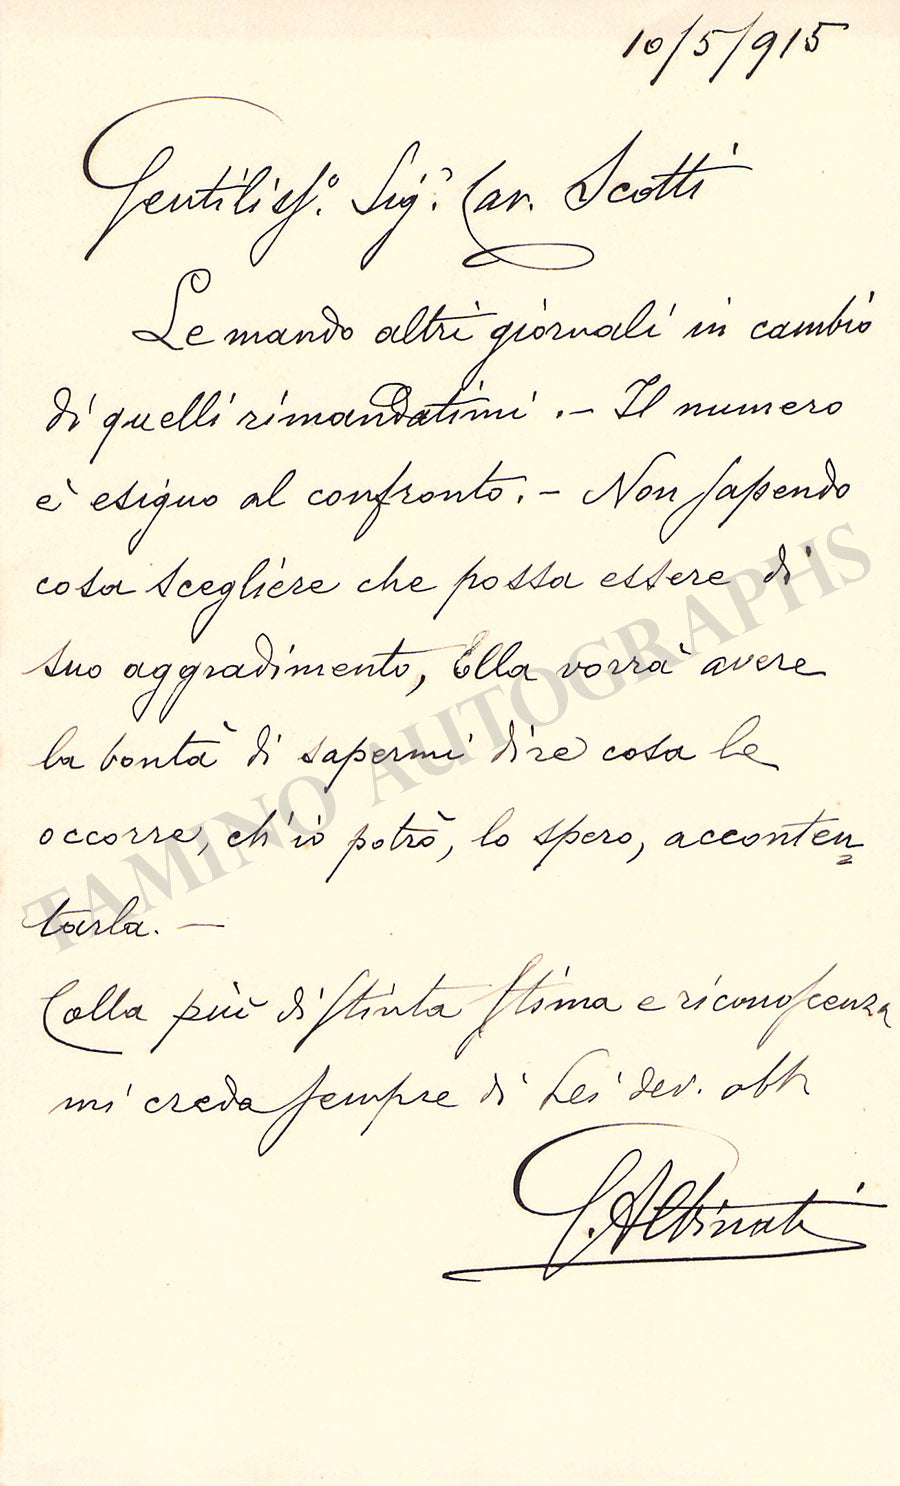 10/5/915
Gentiliss.º Sig.r Cav. Scotti
Le mando altri giornali in cambio
di quelli rimandatimi .– Il numero
è esiguo al confronto.– Non sapendo
cosa scegliere che possa essere di
suo aggradimento, Ella vorrà avere
la bontà di sapermi dire cosa le
occorre, ch'io potrò, lo spero, acconten=
tarla. —
Colla più distinta stima e riconoscenza
mi creda sempre di Lei dev. obb
G. Albinati
TAMINO AUTOGRAPHS